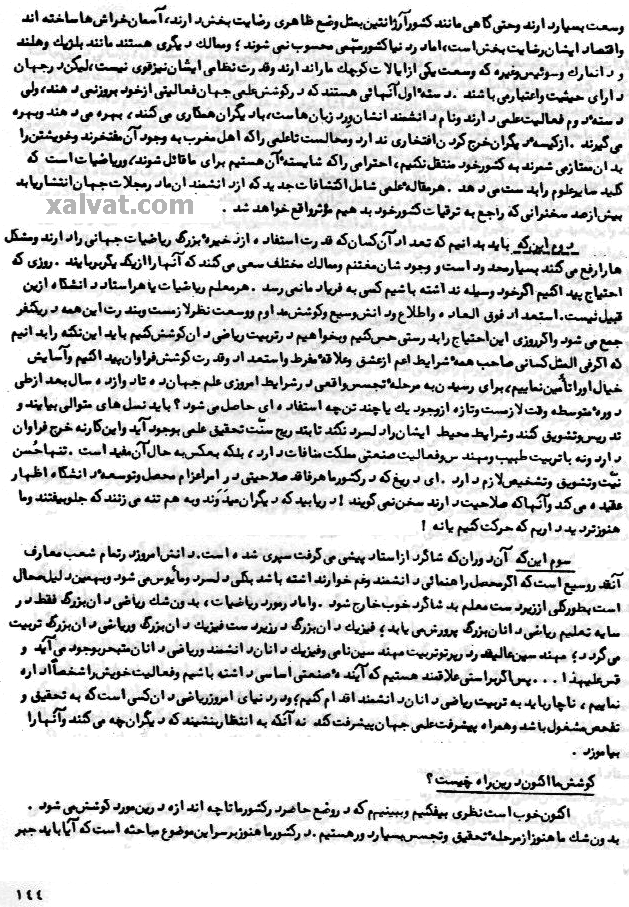 وسعت بسیار دارند وحتی گاهی مانند کشور آرژانتین بمثل وضع ظاهری رضایت بخش دارند، آسمان خراش ها ساخته اند
واقتصاد ایشان رضایت بخش است، اما در دنیا کشور مهمی محسوب نمی شوند؛ وممالک دیگری هستند مانند بلژیک وهلند
و دانمارک وسوئیس وغیره که وسعت یکی از ایالات کوچک ما را ندارند وقدرت نظامی ایشان نیز قوی نیست، لیکن در جهان
دارای حیثیت واعتباری باشند. دسته اول آنهائی هستند که در کوشش علمی جهان فعالیتی از خود بروز نمی دهند، ولی
دسته دوم فعالیت علمی دارند ونام دانشمند انشان ورد زبان هاست، با دیگران همکاری می کنند، بهره می دهند وبهره
می گیرند. از کیسه دیگران خرج کردن افتخاری ندارد ومحالست تا علمی را که اهل مغرب به وجود آن مفتخرند وخویشتن را
بدان ممتازمی شمرند به کشور خود منتقل نکنیم، احترامی را که شایسته آن هستیم برای ما قائل شوند، وریاضیات است که
کلید سایر علوم را بدست می دهد. هر مقاله علمی شامل اکتشافات جدید که از دانشمند ان ما در مجلات جهان انتشار یابد
بیش از صد سخنرانی که راجع به ترقیات کشور خود بدهیم مؤثر واقع خواهد شد.
xalvat.com
دوم این که باید بدانیم که تعداد آن کسان که قدرت استفاده از ذخیره بزرگ ریاضیات جهانی را دارند ومشکل
ها را رفع می کنند بسیار محدود است و وجود شان مغتنم وممالک مختلف سعی می کنند که آنها را از یک دیگر بربایند. روزی که
احتیاج پیدا کنیم اگر خود وسیله نداشته باشیم کسی به فریاد ما نمی رسد. هر معلم ریاضیات یا هر استاد دانشگاه ازین
قبیل نیست. استعداد فوق العاده واطلاع ودانش وسیع وکوشش مداوم و وسعت نظر لازمست وبندرت این همه در یک نفر
جمع می شود واگر روزی این احتیاج را بدرستی حس کنیم وبخواهیم در تربیت ریاضی دان کوشش کنیم باید این نکته را بدانیم
که اگر فی المثل کسانی صاحب همه شرایط اعم از عشق وعلاقه مفرط واستعداد وقدرت کوشش فراوان پیدا کنیم وآسایش
خیال او را تأمین نماییم، برای رسیدن به مرحله تجسس واقعی در شرایط امروزی علم جهان ده تا دوازده سال بعد از طی
دوره متوسطه وقت لازمست وتازه از وجود یک یا چند تن چه استفاده ای حاصل می شود؟ باید نسل های متوالی بیایند و
تدریس وتشویق کنند وشرایط محیط ایشان را دلسرد نکند تا بتدریج سنت تحقیق علمی بوجود آید واین کار نه خرج فراوان
دارد ونه با تربیت طبیب ومهندس وفعالیت صنعتی مملکت منافات دارد، بلکه بعکس به حال آن مفید است. تنها حسن
نیت وتشویق وتشخیص لازم دارد. ای دریغ که در کشور ما هر فاقد صلاحیتی در امر اعزام محصل وتوسعه دانشگاه اظهار
عقیده می کند وآنها که صلاحیت دارند سخن نمی گویند! دریابید که دیگران میدوند وبه هم تنه می زنند که جلو بیفتند وما
هنوز تردید داریم که حرکت کنیم یا نه!
سوم این که آن دوران که شاگرد از استاد پیشی می گرفت سپری شده است. دانش امروز در تمام شعب معارف
آنقدر وسیع است که اگر محصل راهنمائی دانشمند وغم خوار نداشته باشد بکلی دلسرد ومأیوس می شود وبهمین دلیل محال
است بطور کلی از زیر دست معلم بد شاگرد خوب خارج شود. واما در مورد ریاضیات، بدون شک ریاضی دان بزرگ فقط در
سایه تعلیم ریاضی دانان بزرگ پرورش می یابد؛ فیزیک دان بزرگ در زیر دست فیزیک دان بزرگ وریاضی دان بزرگ تربیت
می گردد؛ مهندسین عالیقدر در پرتو تربیت مهندسین نامی وفیزیک دانان دانشمند وریاضی دانان متبحر بوجود می آید و
قس علیهذا... پس اگر براستی علاقمند هستیم که آینده صنعتی اساسی داشته باشیم وفعالیت خویش را شخصاً اداره
نماییم، ناچار باید به تربیت ریاضی دانان دانشمند اقدام کنیم؛ ودر دنیای امروز ریاضی دان کسی است که به تحقیق و
تفحص مشغول باشد وهمراه پیشرفت علمی جهان پیشرفت کند نه آنکه به انتظار بنشیند که دیگران چه می کنند وآنها را
بیاموزد.
کوشش ما اکنون درین راه چیست؟
اکنون خوب است نظری بیفکنیم وببینیم که در وضع حاضر در کشور ما تا چه اندازه درین مورد کوشش می شود.
بدون شک ما هنوز از مرحله تحقیق وتجسس بسیار دور هستیم. در کشور ما هنوز بر سر این موضوع مباحثه است که آیا باید جبر
۱۴۴